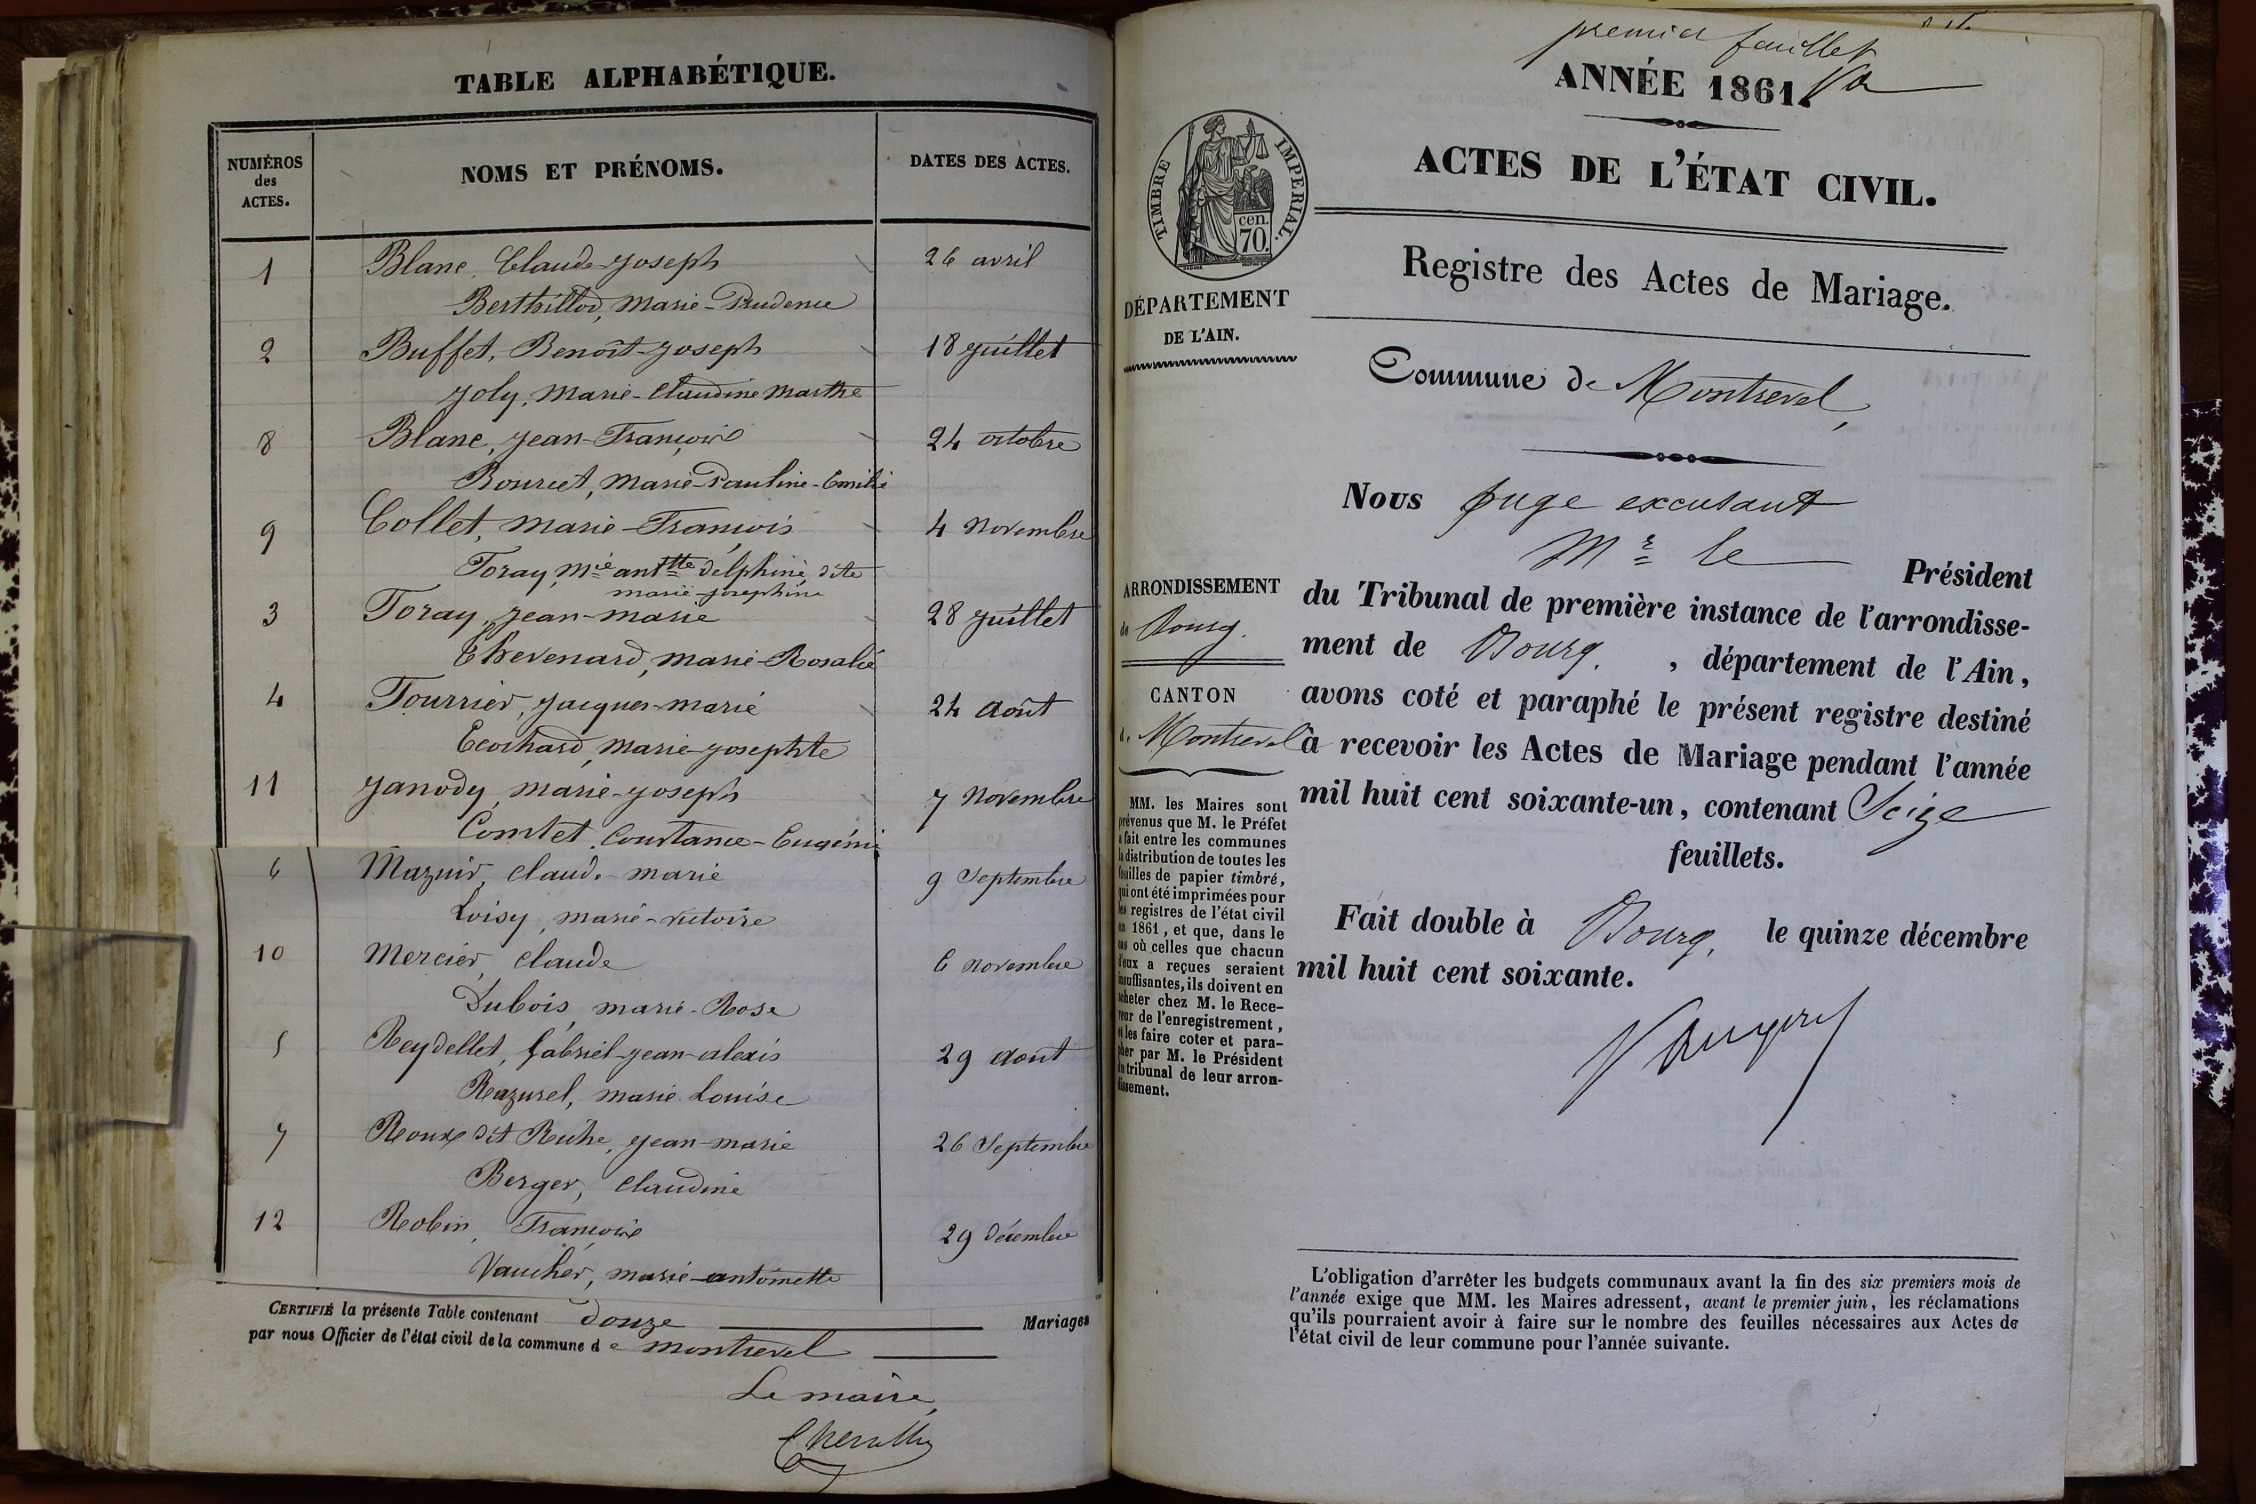 TABLE ALPHABÉTIQUE.
NUMÉROS
des
ACTES.
NOMS ET PRÉNOMS.
DATES DES ACTES.
1 Blanc, Claude-Joseph 26 avril
Berthillod, Marie-Prudence
2 Buffet, Benoît-Joseph 18 Juillet
Joly, Marie-Claudine Marthe
8 Blanc, Jean-François 24 octobre
Bourcet, Marie-Pauline-Emilie
9 Collet, Marie-François 4 Novembre
Foray, Mie anttte Delphine, dite
marie-josephine
3 Foray, Jean-Marie 28 Juillet
Chevenard, Marie-Rosalie
4 Fourrier, Jacques-Marie 24 Août
Ecochard, Marie-Josephte
11 Janody, Marie-Joseph 7 Novembre
Comtet, Constance-Eugénie
6 Mazuir, Claude-Marie 9 Septembre
Loisy, Marie-Victoire
10 Mercier, Claude 6 Novembre
Dubois, Marie-Rose
5 Reydellet, Gabriel-Jean-Alexis 29 Août
Razurel, Marie Louise
7 Roux dit Ruche, Jean-Marie 26 Septembre
Berger, Claudine
12 Robin, François 29 Décembre
Vaucher, Marie-Antoinette
CERTIFIÉ la présente Table contenant douze Mariages
par nous Officier de l'état civil de la commune de Montrevel
Le maire,
premier feuillet
ANNÉE 1861.
ACTES DE L'ÉTAT CIVIL.
TIMBRE IMPERIAL.
cen.
70.
DÉPARTEMENT
DE L'AIN.
Registre des Actes de Mariage.
Commune de Montrevel,
Nous juge excusant
Mr le Président
du Tribunal de première instance de l'arrondisse-
ment de Bourg, département de l'Ain,
avons coté et paraphé le présent registre destiné
à recevoir les Actes de Mariage pendant l'année
mil huit cent soixante-un, contenant Seize
feuillets.
Fait double à Bourg, le quinze décembre
mil huit cent soixante.
ARRONDISSEMENT
de Bourg.
CANTON
de Montrevel
MM. les Maires sont
prévenus que M. le Préfet
a fait entre les communes
la distribution de toutes les
feuilles de papier timbré,
qui ont été imprimées pour
les registres de l'état civil
en 1861, et que, dans le
cas où celles que chacun
d'eux a reçues seraient
insuffisantes, ils doivent en
acheter chez M. le Rece-
veur de l'enregistrement,
et les faire coter et para-
pher par M. le Président
du tribunal de leur arron-
dissement.
L'obligation d'arrêter les budgets communaux avant la fin des six premiers mois de
l'année exige que MM. les Maires adressent, avant le premier juin, les réclamations
qu'ils pourraient avoir à faire sur le nombre des feuilles nécessaires aux Actes de
l'état civil de leur commune pour l'année suivante.